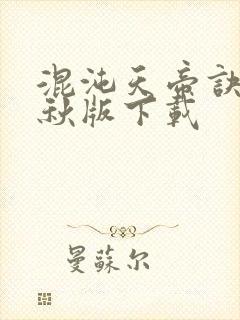 混沌天帝訣
秋版下載
曼蘇尔